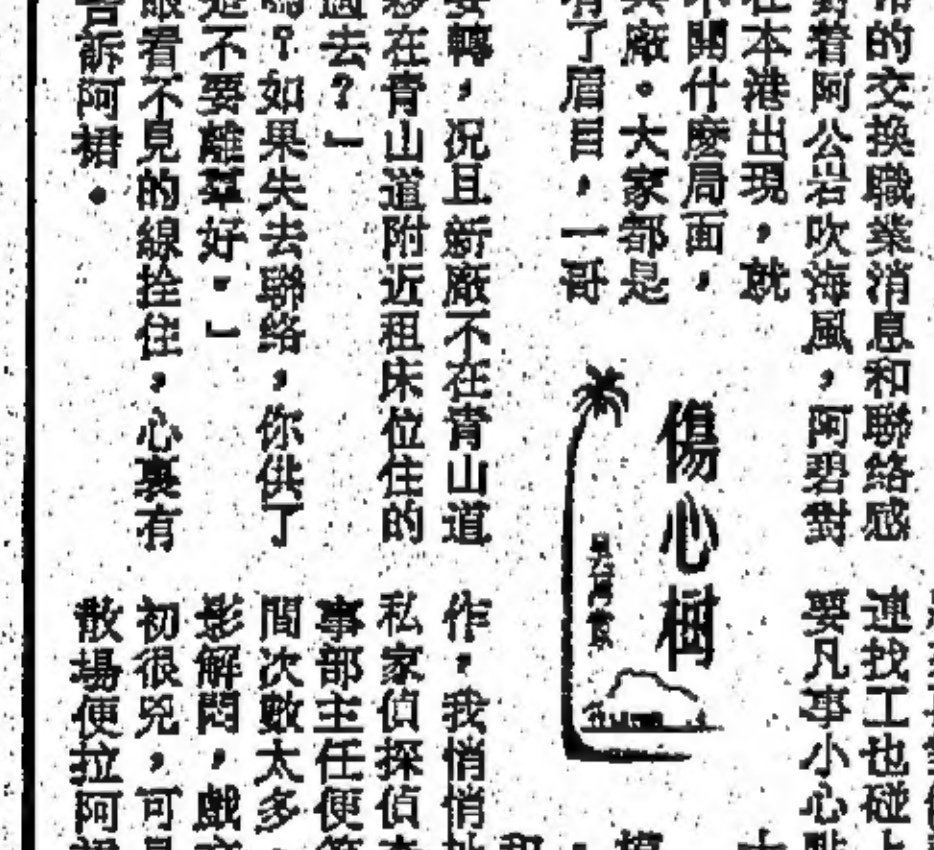 常的交換職業消息和聯絡感
對着阿公岩吹海風，阿碧對
在本港出現，就
不開什麼局面，
其廠。大家都是
有了眉目，一哥
傷心樹
要轉，况且新廠不在青山道
夥在青山道附近租床位住的
過去？」
嗎？如果失去聯絡，你供了
是不要離羣好。」
眼看不見的線拴住，心裏有
告訴阿裙。
連找工也碰上
要凡事小心點
作，我悄悄
私家偵探偵
事部主任便
間次數太多
影解悶，戲
初很兇，可是
散場便拉阿裙